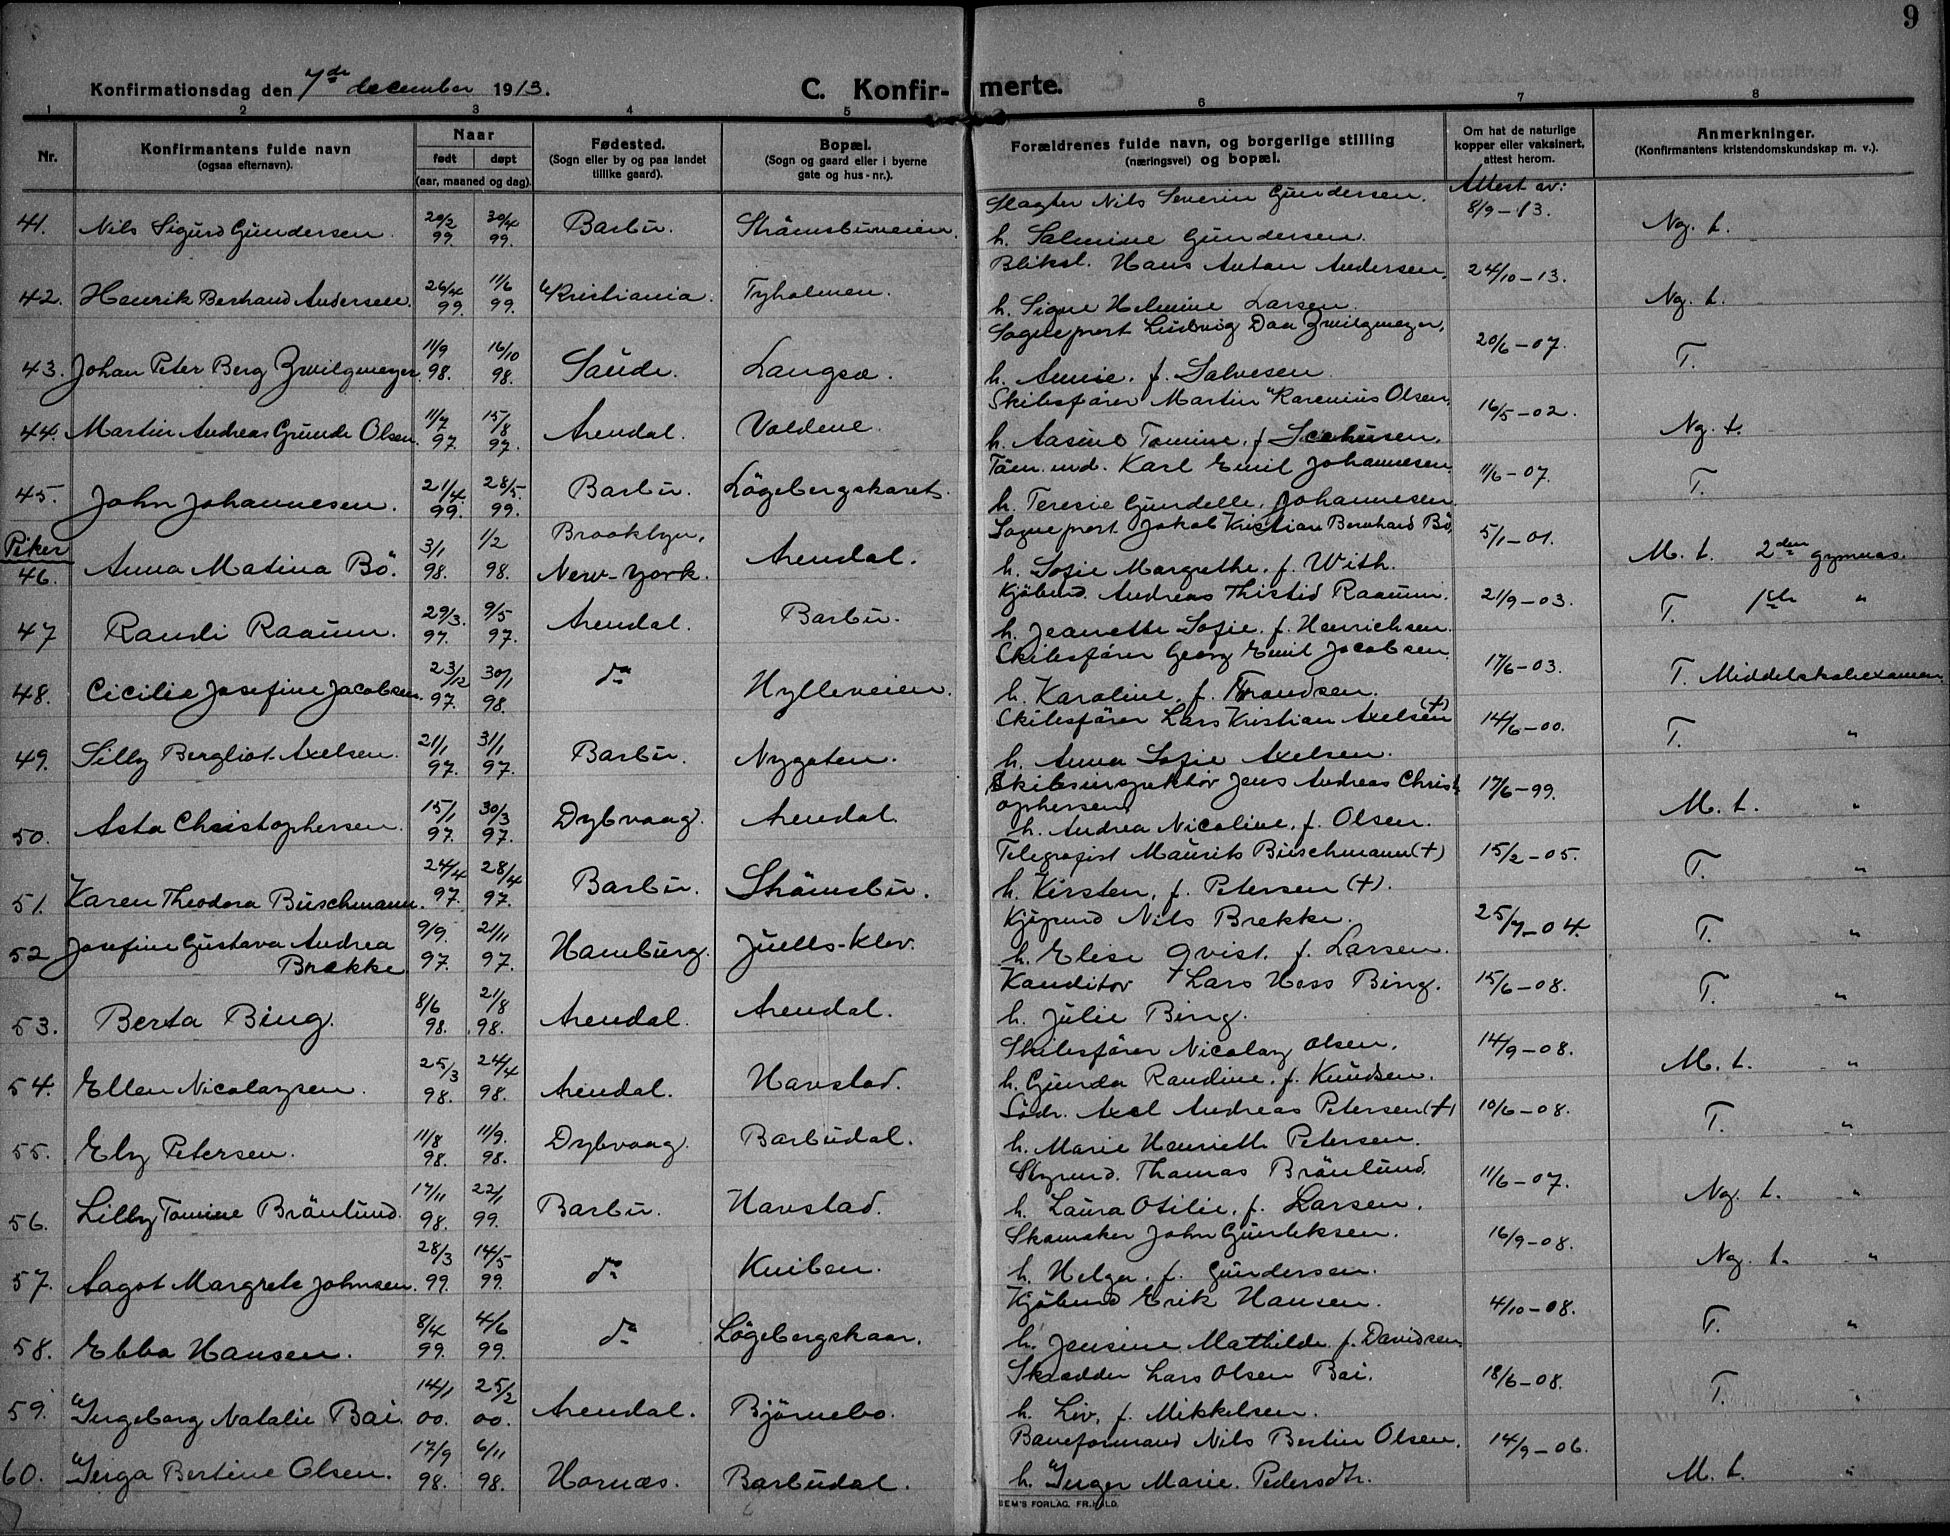 9
Konfirmationsdag den 7de december 1913. C. Konfirmerte.
1 2 3 4 5 6 7 8
Nr. Konfirmantens fulde navn (ogsaa efternavn). Naar født døpt (aar, maaned og dag). Fødested. (Sogn eller by og paa landet tillike gaard). Bopæl. (Sogn og gaard eller i byerne gate og hus-nr.). Forældrenes fulde navn, og borgerlige stilling (næringsvei) og bopæl. Om hat de naturlige kopper eller vaksinert, attest herom. Anmerkninger. (Konfirmantens kristendomskundskap m. v.).
Attest av:
41. Nils Sigurd Gundersen. 20/2 99. 30/4 99. Barbu. Strømsbuveien. Slagter Nils Severin Gundersen. 8/9-13. Ng. t.
h. Salmine Gundersen.
42. Henrik Berhard Andersen. 26/4 99. 11/6 99. Kristiania. Tyholmen. Bliksl. Hans Anton Andersen. 24/10-13. Ng. t.
h. Signe Helmine Larsen.
43. Johan Peter Berg Zwilgmeyer. 11/9 98. 16/10 98. Saude. Langsæ. Sogneprest Ludvig Daa Zwilgmeyer, 20/6-07. T.
h. Annie. f. Salvesen.
44. Martin Andreas Grunde Olsen. 11/7 97. 15/8 97. Arendal. Voldene. Skibsfører Martin Karenius Olsen, 16/5-02. Ng. t.
h. Aasine Tomine, f.
45. John Johannesen. 21/4 99. 28/5 99. Barbu. Løgebergskaret. Tøm. md. Karl Emil Johannesen. 11/6-07. T.
h. Teresie Gundelle, Johannesen.
Piker
46. Anna Matina Bø. 3/1 98. 1/2 98. Brooklyn, New-York. Arendal. Sogneprest Jakob Kristian Bernhard Bø, 5/1-01. M. t. 2den gymnas.
h. Sofie Margrethe. f. With.
47 Randi Raaum. 29/3. 97. 9/5 97. Arendal. Barbu. Kjøbmd. Andreas Thistid Raaum. 21/9-03. T. 1ste "
h. Jeanette Sofie. f. Henrichsen.
48. Cicilie Josefine Jacobsen. 23/12 97. 30/1 98. do Hylleveien. Skibsfører Georg Emil Jacobsen. 17/6-03. T. Middelskoleexamen.
h. Karoline, f. Trondsen.
49. Silly Bergliot Axelsen. 21/1 97. 31/1 97. Barbu. Nygaten. Skibsfører Lars Kristian Axelsen (+) 14/6-00. T. "
h. Anna Sofie Axelsen.
50. Asta Christophersen. 15/1 97. 30/3 97. Dybvaag. Arendal. Skibsinspektør Jens Andreas Christ- 17/6-99. M. t. "
ophersen
h. Andrea Nicoline, f. Olsen.
51. Karen Theodora Buschmann. 24/4 97. 28/4 97. Barbu. Strømsbu. Telegrafist Maurits Buschmann (+) 15/2-05. T. "
h. Kirsten, f. Petersen (+).
52 Josefine Gustava Andrea Brekke. 9/9. 97. 21/11 97. Hamburg. Juells-Klev. Kjøpmd Nils Brekke. 25/7-04. T. "
h. Elise Qvist. f. Larsen.
53. Berta Bing. 8/6 98. 21/8 98. Arendal. Arendal. Konditor Lars Hess Bing. 15/6-08. T. "
h. Julie Bing.
54. Ellen Nicolaysen. 25/3 98. 24/4 98. Arendal. Havstad. Skibsfører Nicolay Olsen. 14/9-08. M. t. "
h. Gunda Randine. f. Knudsen.
55. Ely Petersen. 11/8 98. 11/9. 98. Dybvaag. Barbudal. Axel Andreas Petersen (+) 10/6-08. T. "
h. Marie Henriette Petersen.
56. Lilly Tomine Brönlund. 17/11 98. 22/1 99. Barbu. Havstad. Styrmd. Thomas Brönlund. 11/6-07. Ng. t. "
h. Laura Otilie, f. Larsen.
57. Aagot Margrete Johnsen. 28/3 99. 14/5 99. do Kniben. Skomaker John Gunleksen. 16/9-08. Ng. t. "
h. Helga. f. Gundersen.
58. Ebba Hansen. 8/4 99. 4/6 99. do Løgebergskaar. Kjøbmd Erik Hansen. 4/10-08. T. "
h. Jensine Mathilde f. Davidsen.
59. Ingeborg Natalie Bai. 14/1 00. 25/2 00. Arendal. Bjørnebo. Skrædder Lars Olsen Bai. 18/6-08. T. "
h. Liv, f. Mikkelsen.
60. Inga Bertine Olsen. 17/9 98. 6/11 98. Hornæs. Barbudal. Baneformand Nils Bertin Olsen. 14/9-06. M. t. "
h. Inger Marie. Pedersdtr.
SEM'S FORLAG, FR.HALD.